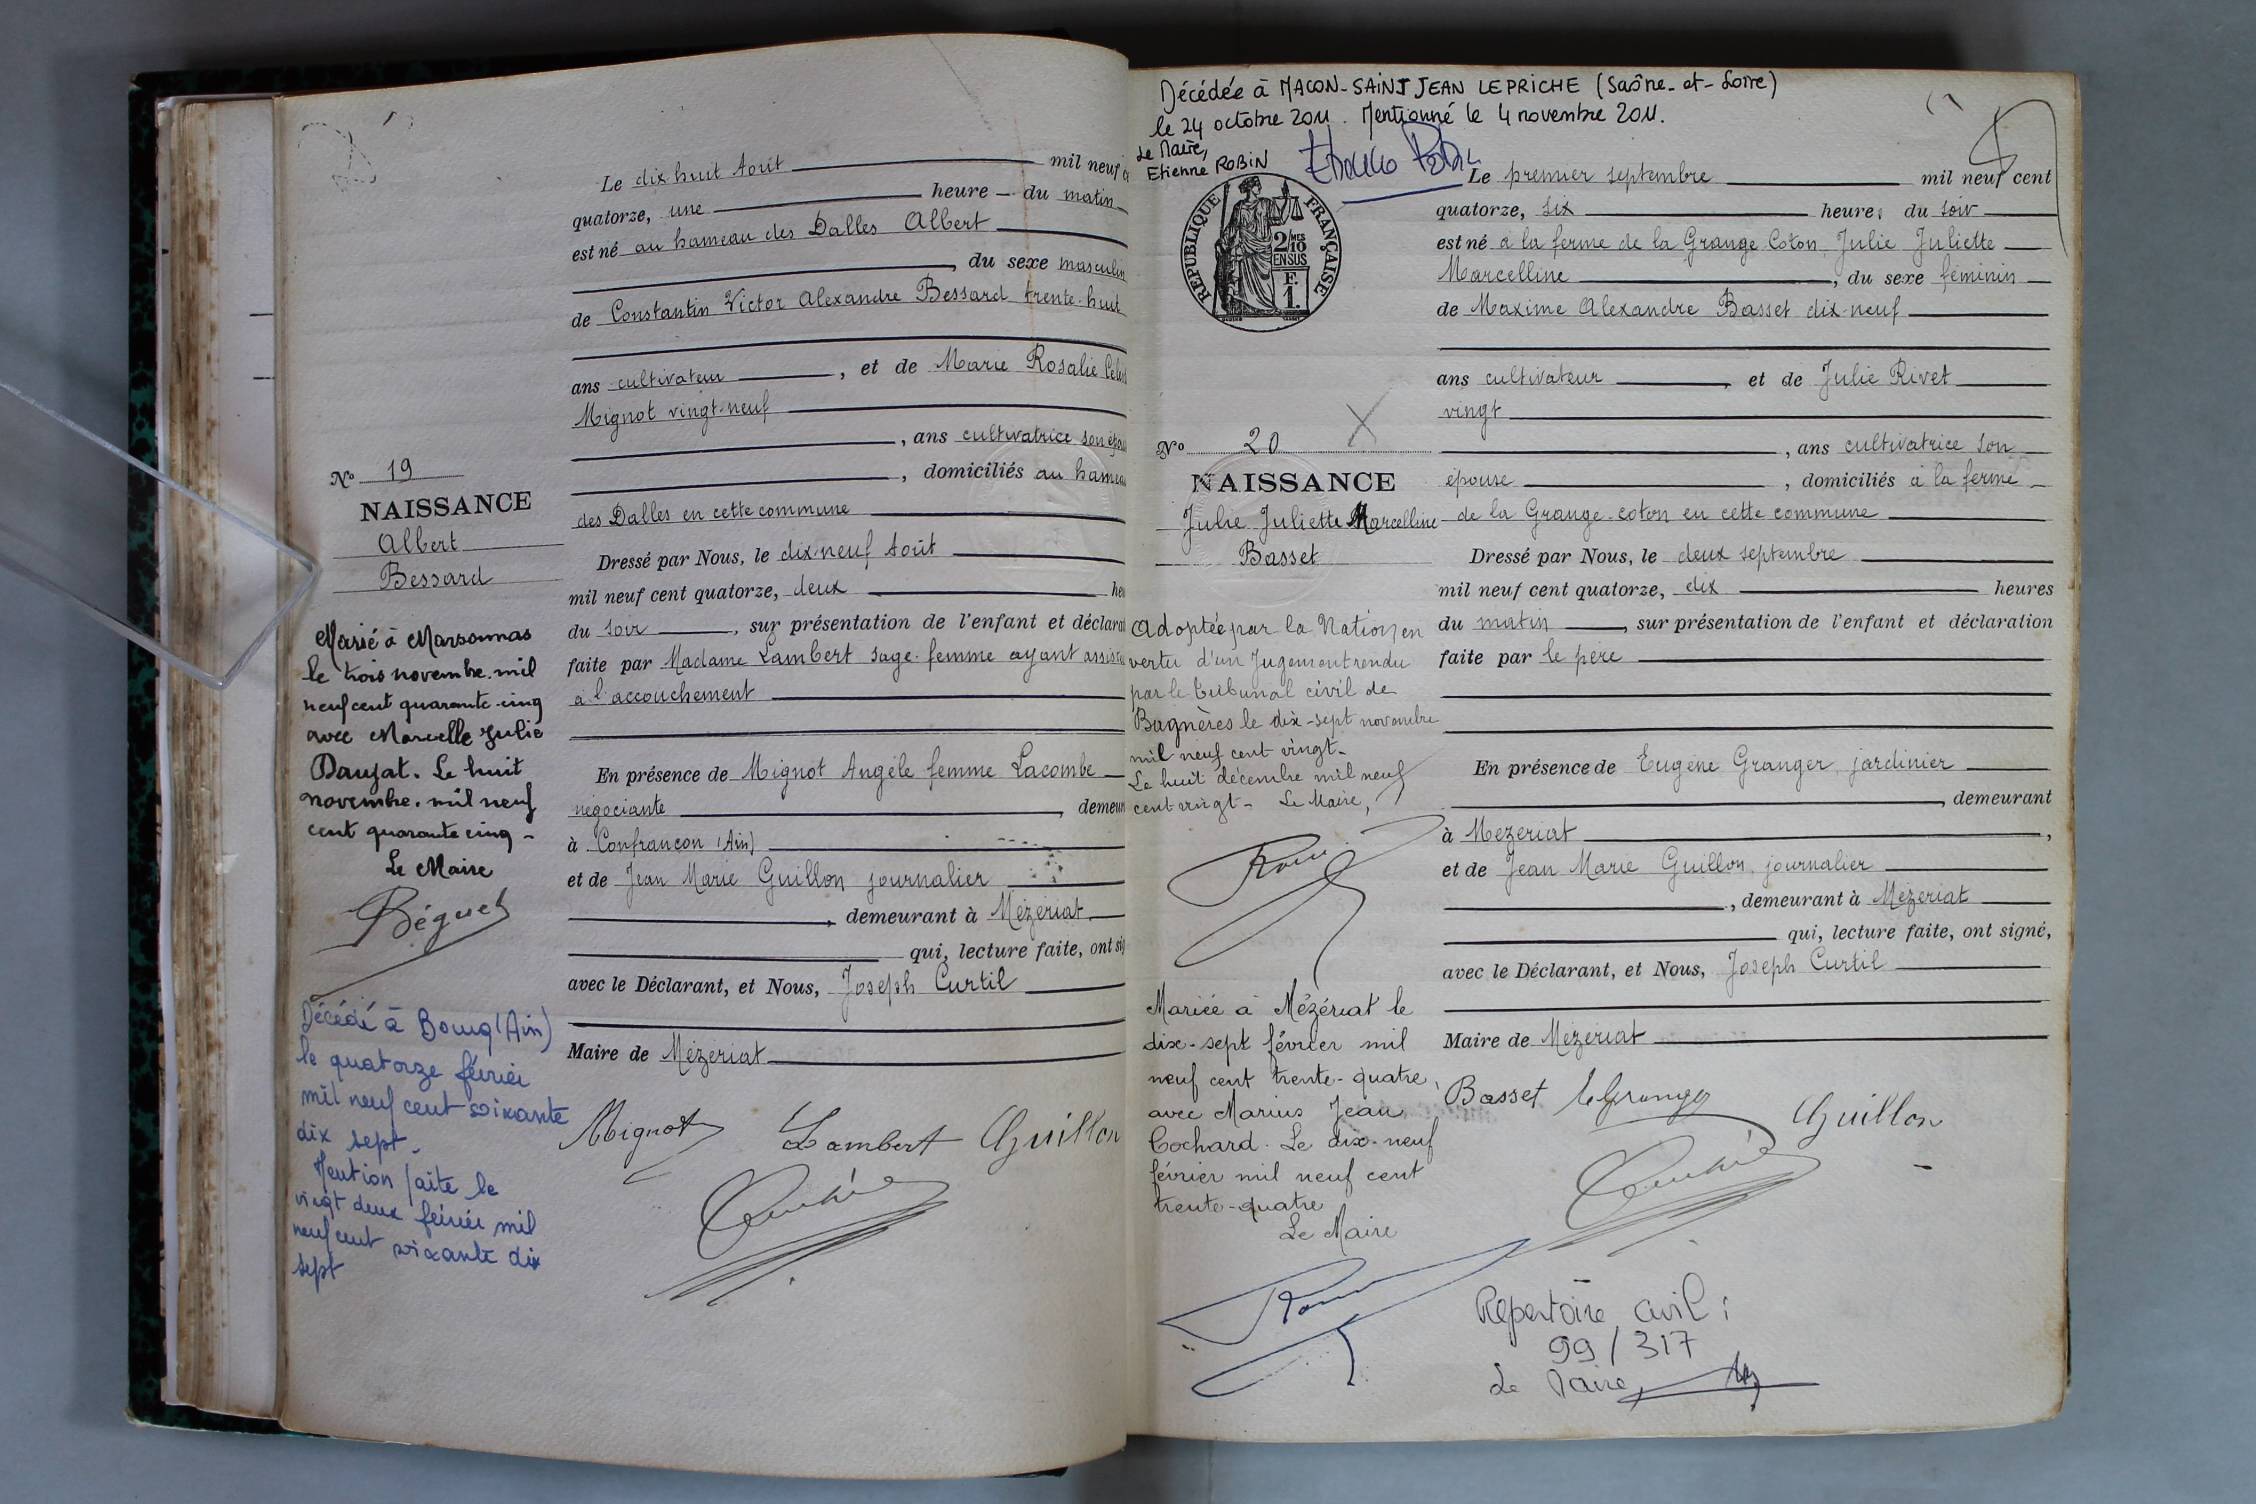 Le dix huit Août mil neuf
quatorze, une heure du matin
est né au hameau des Dalles Albert
, du sexe masculin
de Constantin Victor Alexandre Bessard trente-huit
ans cultivateur , et de Marie Rosalie
Mignot vingt-neuf
, ans cultivatrice son
, domiciliés au
des Dalles en cette commune
Dressé par Nous, le dix-neuf Août
mil neuf cent quatorze, deux
du soir , sur présentation de l'enfant et
faite par Madame Lambert sage-femme ayant
à l'accouchement
En présence de Mignot Angèle femme Lacombe
négociante ,
à Confrançon (Ain)
et de Jean Marie Guillon journalier
, demeurant à Mézériat
qui, lecture faite, ont
avec le Déclarant, et Nous, Joseph Curtil
Maire de Mézeriat
Mignot Lambert Guillon
No 19
NAISSANCE
Albert
Bessard
Marié à Marsonnas
le trois novembre mil
neuf cent quarante-cinq
avec Marcelle Julie
Daujat. Le huit
novembre mil neuf
cent quarante cinq -
Le Maire
Béguet
Décédé à Bourg (Ain)
le quatorze février
mil neuf cent soixante
dix sept.
Mention faite le
vingt deux février mil
neuf cent soixante dix
sept
Décédée à MACON-SAINT JEAN LE PRICHE (Saône-et-Loire)
le 24 octobre 2011. Mentionné le 4 novembre 2011.
Le Maire,
Etienne ROBIN
REPUBLIQUE FRANÇAISE
2/10 MES
EN SUS
F.
1.
Le premier septembre mil neuf cent
quatorze, six heures du soir
est né à la ferme de la Grange-Coton, Julie Juliette
Marcelline , du sexe féminin
de Maxime Alexandre Basset dix-neuf
ans cultivateur , et de Julie Rivet
vingt
, ans cultivatrice son
épouse , domiciliés à la ferme
de la Grange-coton en cette commune
Dressé par Nous, le deux septembre
mil neuf cent quatorze, dix heures
du matin , sur présentation de l'enfant et déclaration
faite par le père
En présence de Eugène Granger, jardinier
, demeurant
à Mézeriat ,
et de Jean Marie Guillon, journalier
, demeurant à Mézeriat
qui, lecture faite, ont signé,
avec le Déclarant, et Nous, Joseph Curtil
Maire de Mézeriat
Basset Guillon
No 20 X
NAISSANCE
Julie Juliette Marcelline
Basset
Adoptée par la Nation en
vertu d'un Jugement rendu
par le tribunal civil de
Bagnères le dix-sept novembre
mil neuf cent vingt-
Le huit décembre mil neuf
cent vingt- Le Maire,
Mariée à Mézériat le
dix-sept février mil
neuf cent trente-quatre,
avec Marius Jean
Cochard. Le dix-neuf
février mil neuf cent
trente-quatre
Le Maire
Répertoire civil :
99/317
Le Maire,